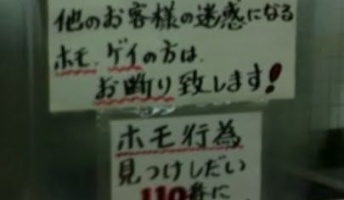 他のお客様の迷惑になる
ホモ、ゲイの方は、
お断り致します!
ホモ行為
見つけしだい
110番に